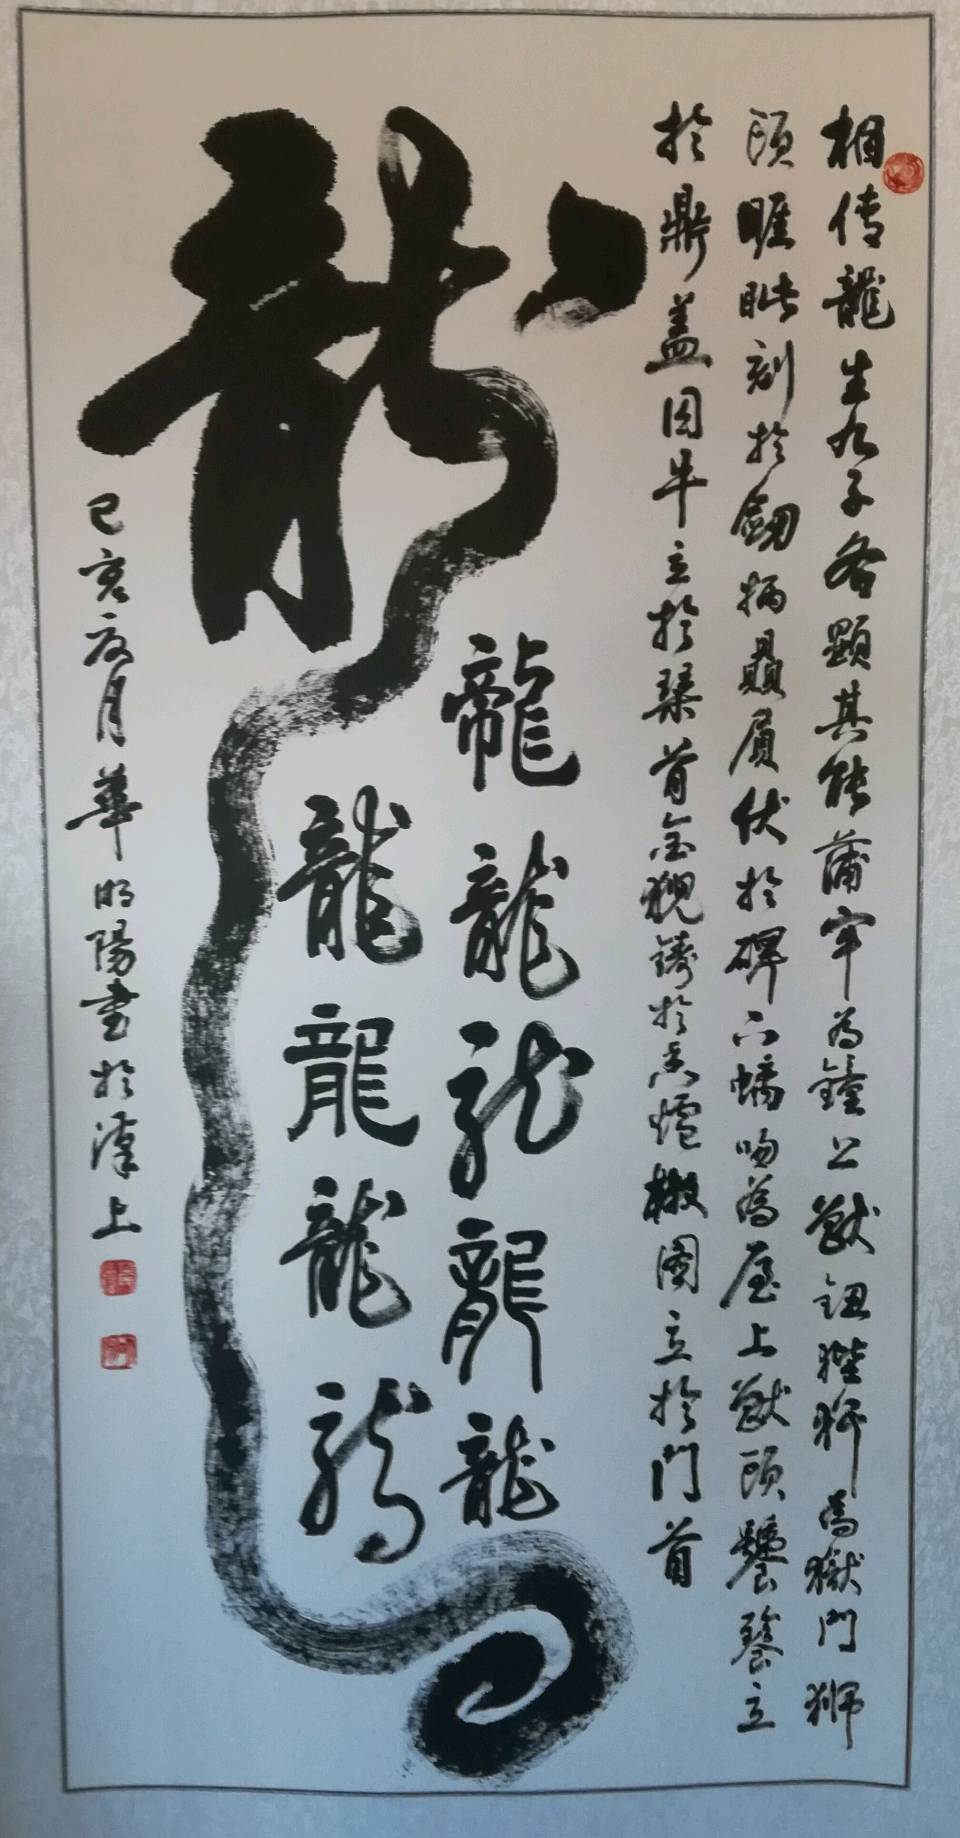 相传龍生九子各顯其能蒲牢为鐘上獸鈕狴犴為獄門狮
頭睚眦刻於劍柄贔屓伏於碑下螭吻為屋上獸頭饕餮立
於鼎盖囚牛立於琴首金猊鑄於香爐椒圖立於門首
龍
龍龍龍龍龍
龍龍龍龍
己亥夜月華明陽書於漢上